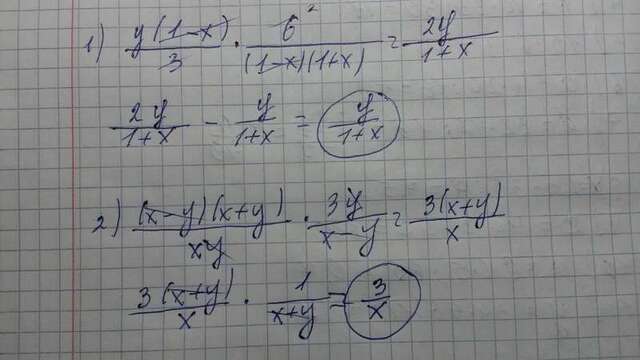 1) y(1-x)/3 · 6²/(1-x)(1+x) = 2y/1+x
2y/1+x - y/1+x = y/1+x
2) (x-y)(x+y)/xy · 3y/x-y = 3(x+y)/x
3(x+y)/x · 1/x+y = 3/x